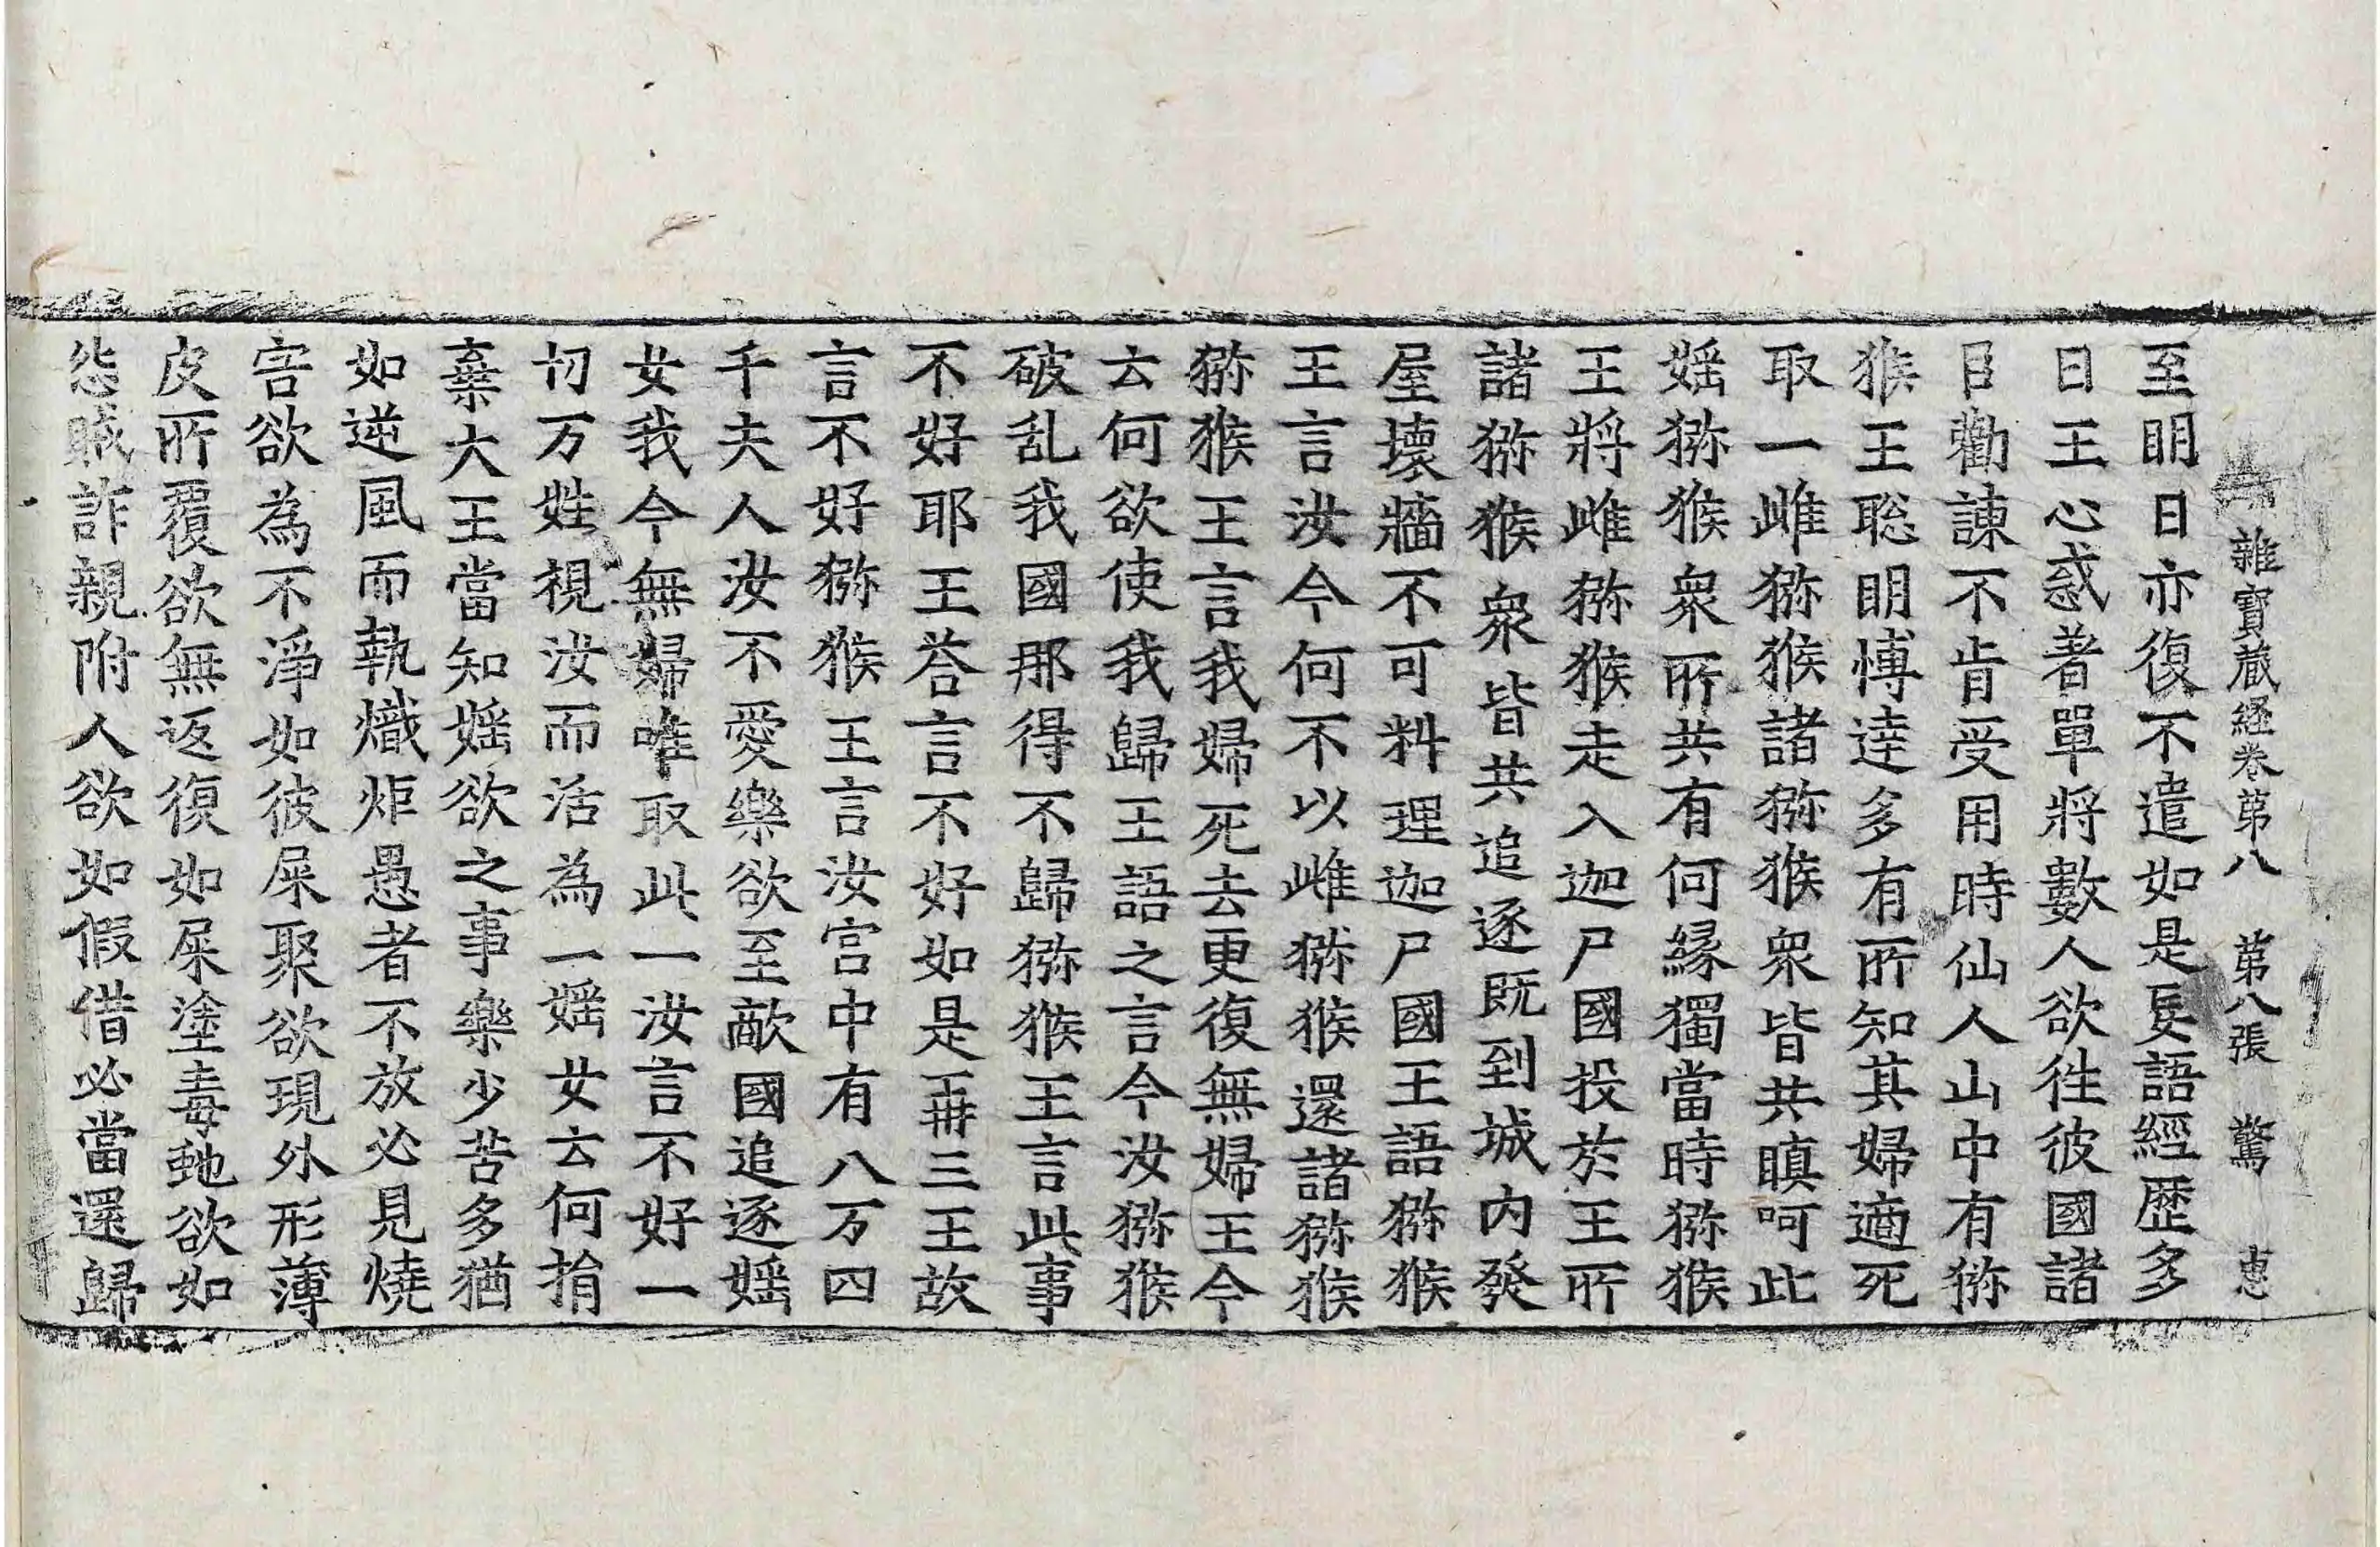 雜寶蔵経卷苐八 苐八張 驚 恵
至明日亦復不遣如是妄語經歷多
日王心惑著單將數人欲徃彼國諸
臣勸諫不肯受用時仙人山中有猕
猴王聡明博逹多有所知其婦適死
取一雌猕猴諸猕猴衆皆共瞋呵此
婬猕猴衆所共有何縁獨當時猕猴
王將雌猕猴走入迦尸國投於王所
諸猕猴衆皆共追逐既到城內發
屋壞牆不可料理迦尸國王語猕猴
王言汝今何不以雌猕猴還諸猕猴
猕猴王言我婦死去更復無婦王今
云何欲使我歸王語之言今汝猕猴
破乱我國那得不歸猕猴王言此事
不好耶王荅言不好如是再三王故
言不好猕猴王言汝宫中有八万四
千夫人汝不愛樂欲至敵國追逐婬
女我今無婦唯取此一汝言不好一
切万姓視汝而活為一婬女云何捐
棄大王當知婬欲之事樂少苦多猶
如逆風而執熾炬愚者不放必見燒
害欲為不淨如彼屎聚欲現外形薄
皮所覆欲無返復如屎塗毒虵欲如
怨賊詐親附人欲如假借必當還歸